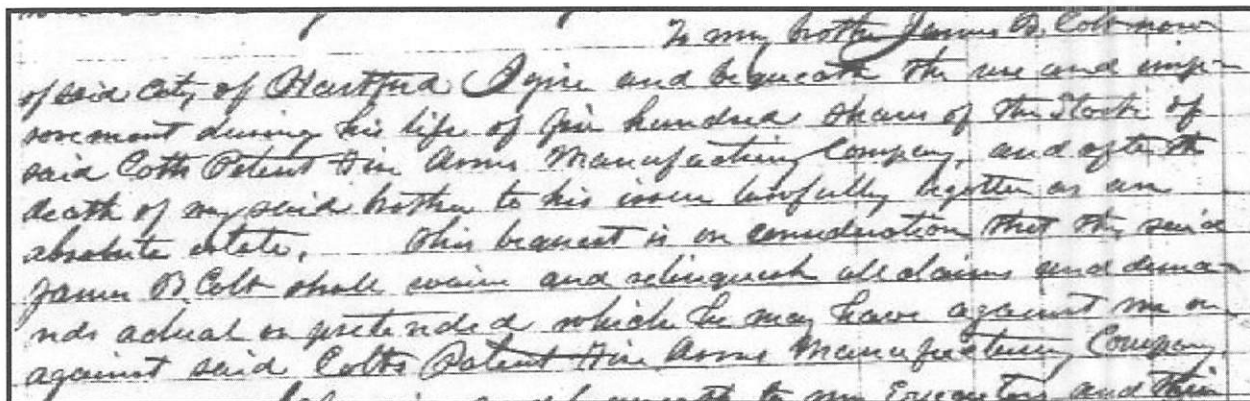 To my brother James B. Colt now
of said City of Hartford I give and bequeath the use and imp-
rovement during his life of five hundred shares of the Stock of
said Colts Patent Fire Arms Manufacturing Company, and after the
death of my said brother to his issue lawfully begotten as an
absolute estate. This bequest is on consideration that the said
James B Colt shall waive and relinquish all claims and dema-
nds actual or pretended which he may have against me or
against said Colts Patent Fire Arms Manufacturing Company.
and bequeath to my Executors and their